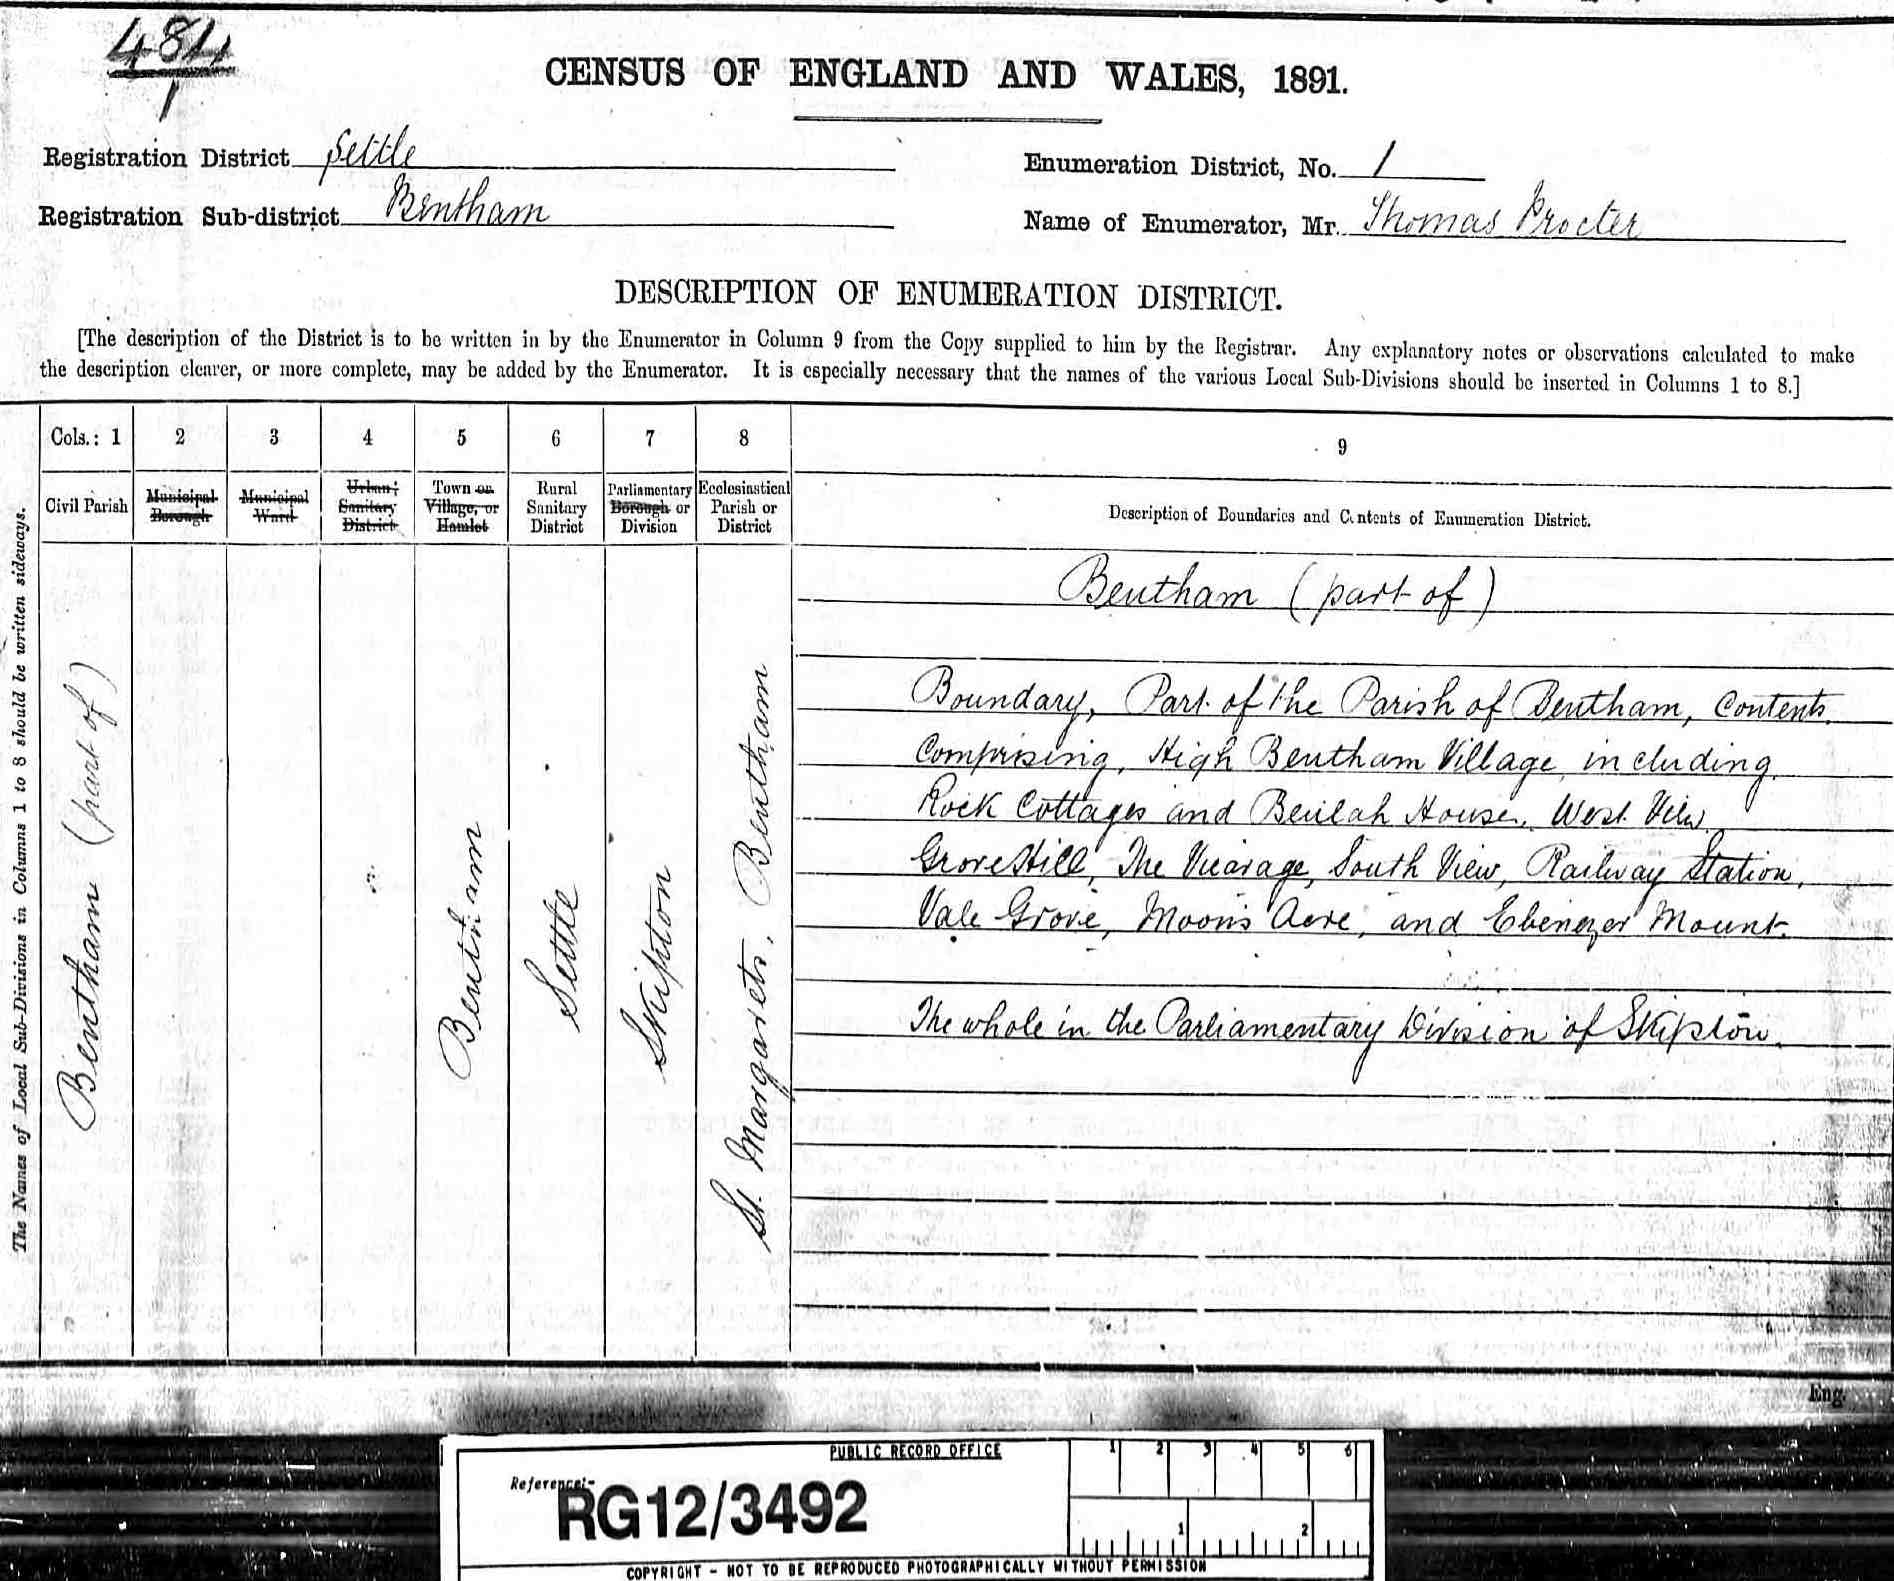 484
1
CENSUS OF ENGLAND AND WALES, 1891.
Registration District Settle
Enumeration District, No. 1
Registration Sub-district Bentham
Name of Enumerator, Mr. Thomas Procter
DESCRIPTION OF ENUMERATION DISTRICT.
[The description of the District is to be written in by the Enumerator in Column 9 from the Copy supplied to him by the Registrar. Any explanatory notes or observations calculated to make
the description clearer, or more complete, may be added by the Enumerator. It is especially necessary that the names of the various Local Sub-Divisions should be inserted in Columns 1 to 8.]
The Names of Local Sub-Divisions in Columns 1 to 8 should be written sideways.
Cols.: 1 2 3 4 5 6 7 8 9
Civil Parish
Municipal
Borough
Municipal
Ward
Urban
Sanitary
District
Town or
Village, or
Hamlet
Rural
Sanitary
District
Parliamentary
Borough or
Division
Ecclesiastical
Parish or
District
Description of Boundaries and Contents of Enumeration District.
Bentham (part of)
Bentham
Settle
Skipton
St. Margarets, Bentham
Bentham (part of)
Boundary, Part of the Parish of Bentham, Contents
Comprising, High Bentham Village, including
Rock Cottages and Beulah House, West View
Grove Hill, The Vicarage, South View, Railway Station,
Vale Grove, Moon's Acre, and Ebenezer Mount.
The whole in the Parliamentary Division of Skipton.
Eng.
PUBLIC RECORD OFFICE
1 2 3 4 5 6
Reference:-
RG12/3492
1 2
COPYRIGHT - NOT TO BE REPRODUCED PHOTOGRAPHICALLY WITHOUT PERMISSION